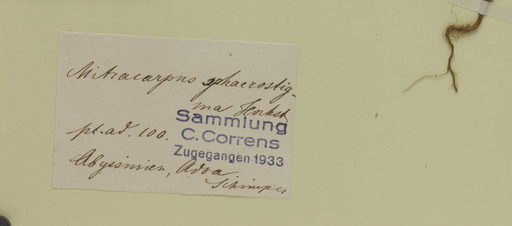 Mitracarpus sphaerostig-
ma Hochst
pl. ad. 100.
Abyssinien, Adoa
Schimper
Sammlung
C. Correns
Zugegangen 1933